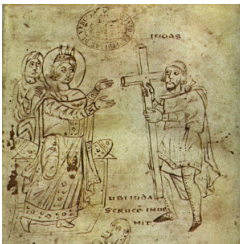 IUDAS
UBI IUDA
SCRUCE INUE
NIT